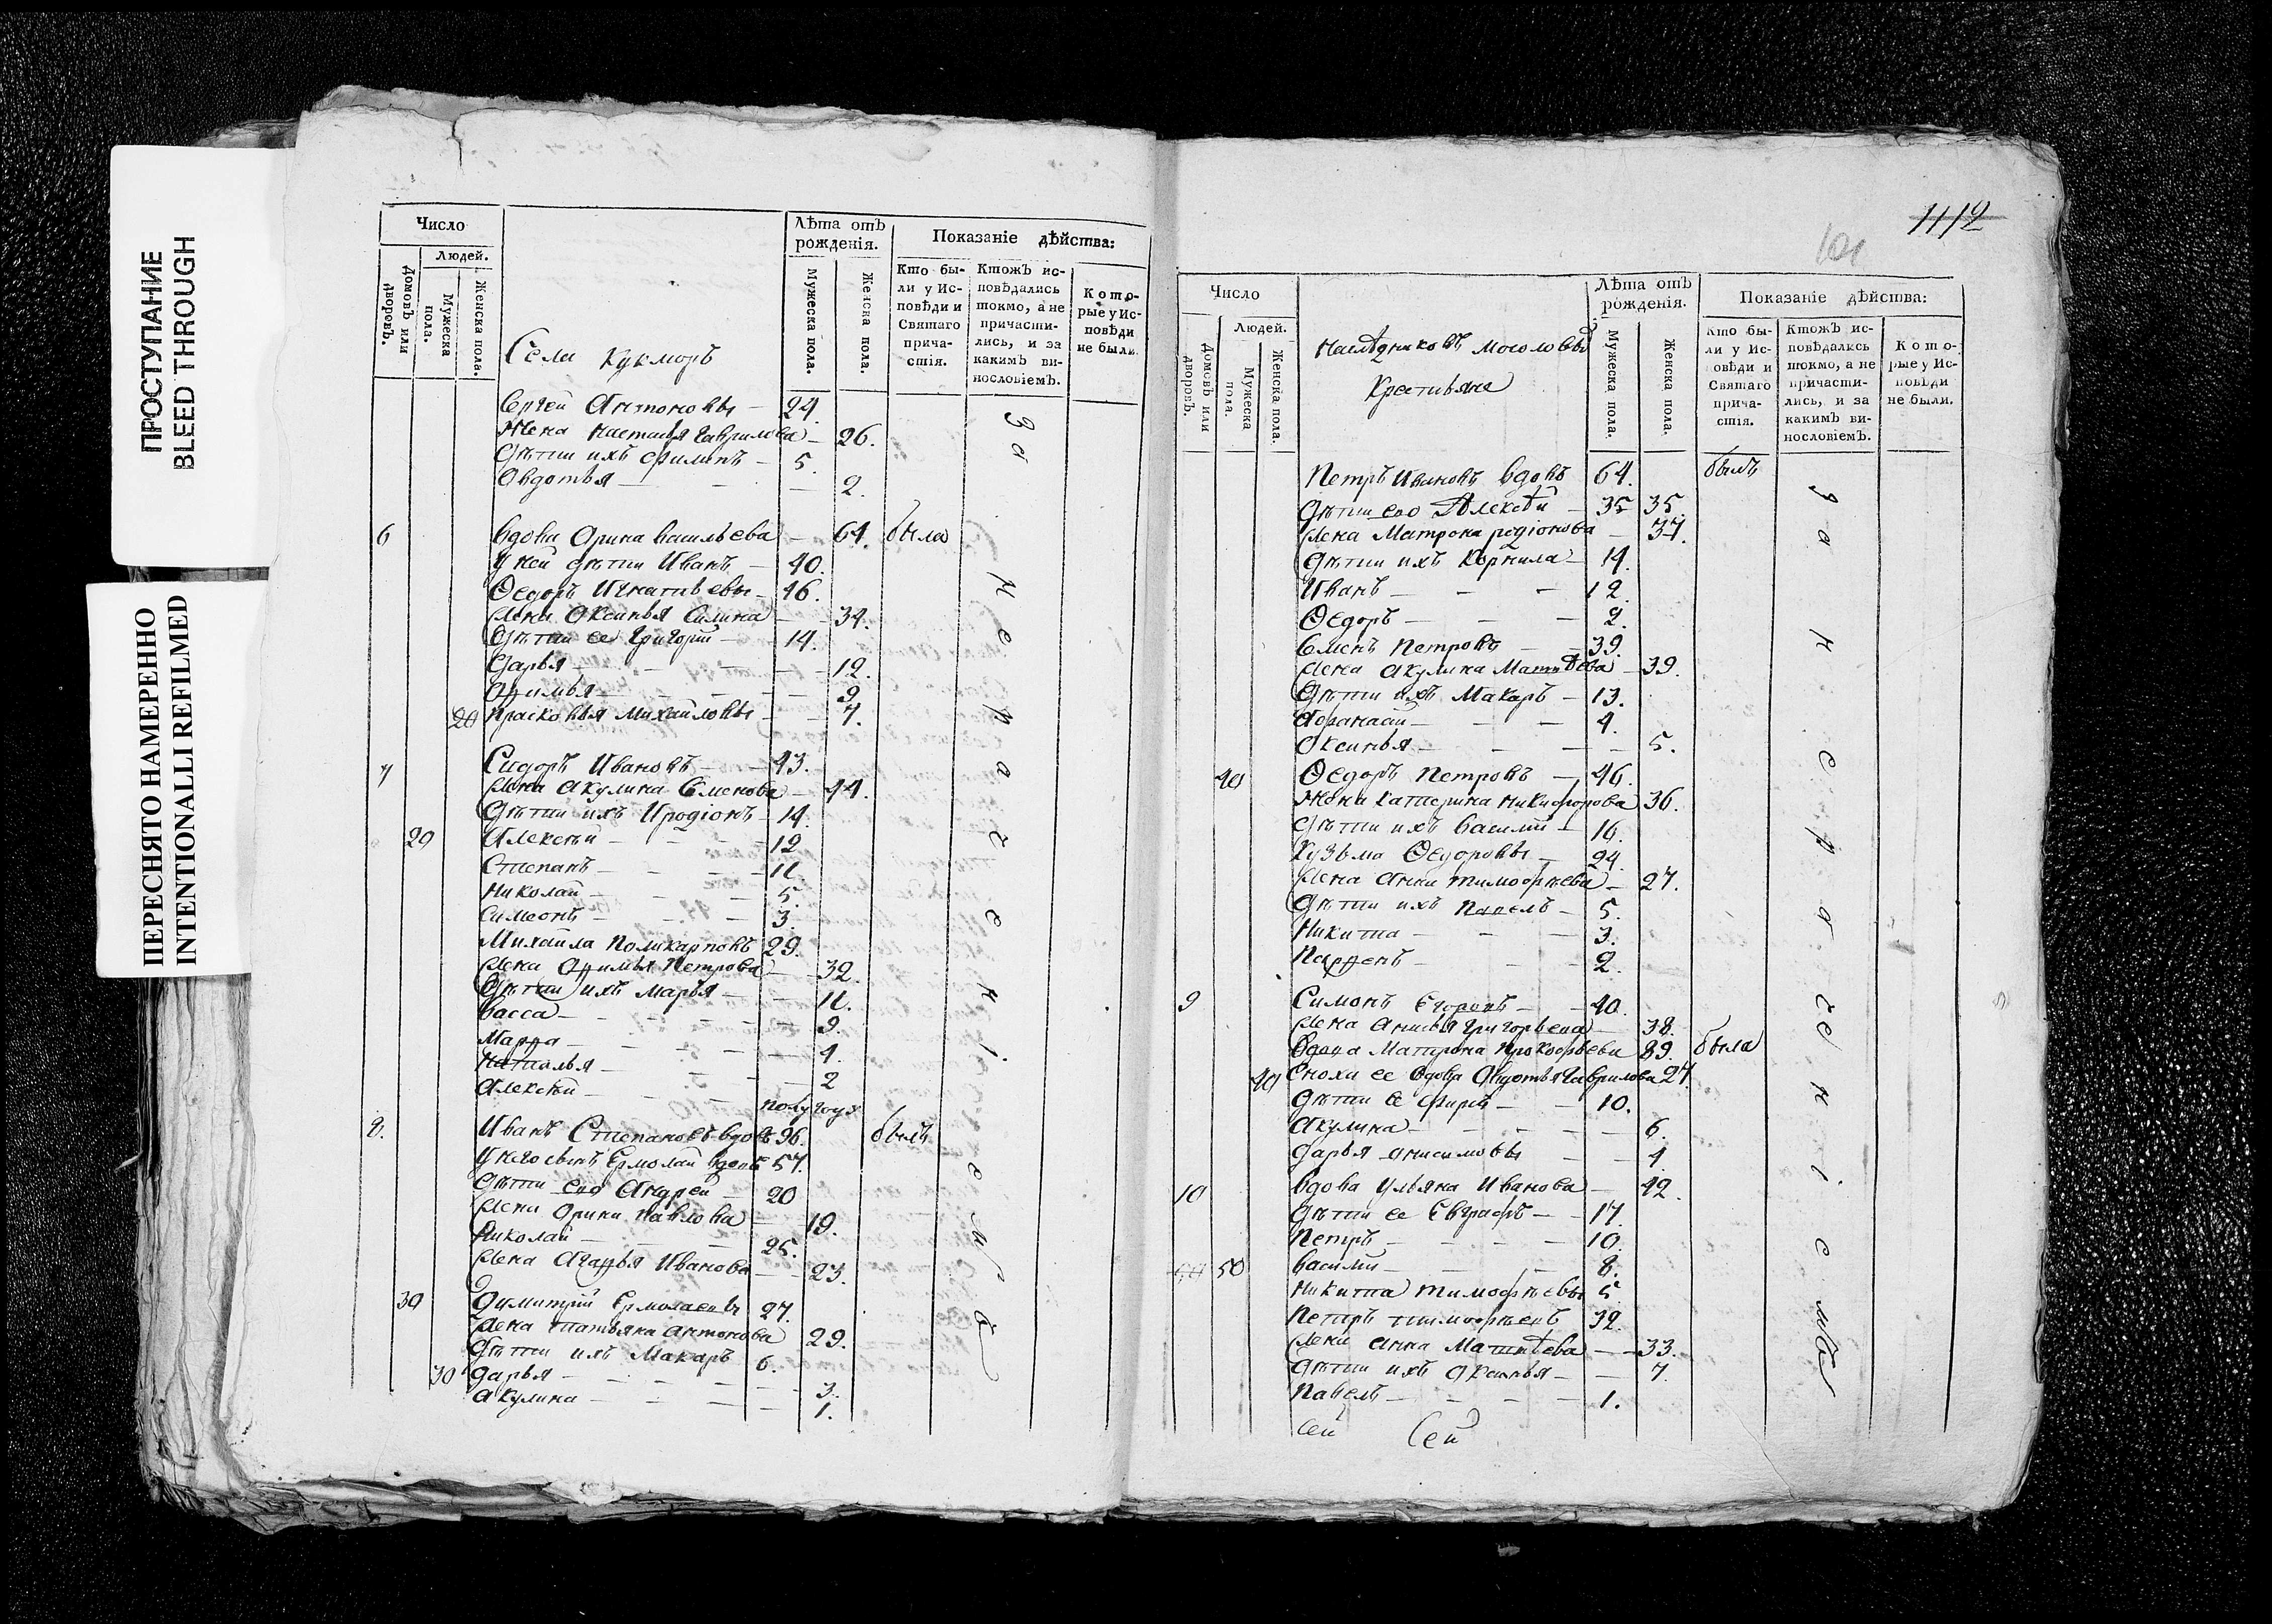 ПРОСТУПАНИЕ
BLEED THROUGH
ПЕРЕСНЯТО НАМЕРЕННО
INTENTIONALLI REFILMED
Число
Людей.
Домовъ или дворовъ.
Мужеска пола.
Женска пола.
Лѣта отъ рожденія.
Мужеска пола.
Женска пола.
Показаніе дѣйства:
Кто были у Исповѣди и Святаго причастія.
Ктожъ исповѣдались токмо, а не причастились, и за какимъ винословіемъ.
Которые у Исповѣди не были.
Села Кукморъ
Сергей Антоновы — 24.
Жена Настасья Гаврилова — 26.
Дѣти ихъ Филипъ — 5.
Овдотья — 2.
6 Вдова Орина Васильева — 64. была
У ней дѣти Иванъ — 40.
Ѳедоръ Игнатьевы — 46.
Жена Оксинья Силина — 34.
Дѣти ее Григорій — 14.
Дарья — 12.
Офимья — 9
20 Прасковья Михайловы — 7.
7 Сидоръ Ивановъ — 43.
Жена Акулина Семенова — 44.
Дѣти ихъ Иродіонъ — 14.
20 Алексѣй — 12
Степанъ — 11.
Николай — 5.
Симеонъ — 3.
Михайла Поликарповъ 29.
Жена Офимья Петрова — 32.
Дѣти ихъ Марья — 11.
Васса — 9.
Марфа — 4.
Наталья — 2
Алексѣй — полугоду
8. Иванъ Степановъ вдовъ 96. былъ
У него сынъ Ермолай вдовъ 57.
Дѣти его Андрей — 20
Жена Орина Павлова — 19.
Николай — 25.
Жена Агафья Иванова — 23.
30 Димитрій Ермолаевы 27.
Жена Татьяна Антонова 29.
Дѣти ихъ Макаръ 6.
30 Дарья — 3.
Акулина — 1.
За нераченіемъ
1112
101
Число
Людей.
Домовъ или дворовъ.
Мужеска пола.
Женска пола.
Лѣта отъ рожденія.
Мужеска пола.
Женска пола.
Показаніе дѣйства:
Кто были у Исповѣди и Святаго причастія.
Ктожъ исповѣдались токмо, а не причастились, и за какимъ винословіемъ.
Которые у Исповѣди не были.
Наслѣдниковъ
Крестьяне
Петръ Ивановъ вдовъ 64. былъ
Дѣти его Алексѣй — 35 35.
Жена Матрона Родіонова — 37.
Дѣти ихъ Корнила — 14.
Иванъ — 12.
Ѳедоръ — 2.
Семенъ Петровъ — 39.
Жена Акулина Матвѣева — 39.
Дѣти ихъ Макаръ — 13.
Афанасій — 4.
Оксинья — 5.
40 Ѳедоръ Петровъ — 46.
Жена Катерина Никифорова 36.
Дѣти ихъ Василій — 16.
Кузьма Ѳедоровы — 24
Жена Анна Тимофѣева — 27.
Дѣти ихъ Павелъ — 5.
Никита — 3.
Парфенъ — 2.
9 Симонъ Егоровъ — 40.
Жена Анисья Григорьева — 38.
Вдова Матрона Прокофьева 89. была
40 Сноха ее вдова Овдотья Гаврилова 27.
Дѣти ее Фирсъ — 10.
Акулина — 6.
Дарья Анисимовы — 4.
10 Вдова Ульяна Иванова — 42.
Дѣти ее Евграфъ — 17.
Петръ — 10.
50 Василій — 8.
Никита Тимофѣевы 5.
Петръ Тимофѣевъ 32.
Жена Анна Матвѣева — 33.
Дѣти ихъ Оксинья — 7.
Павелъ — 1.
Сей Сей
За нераченіемъ